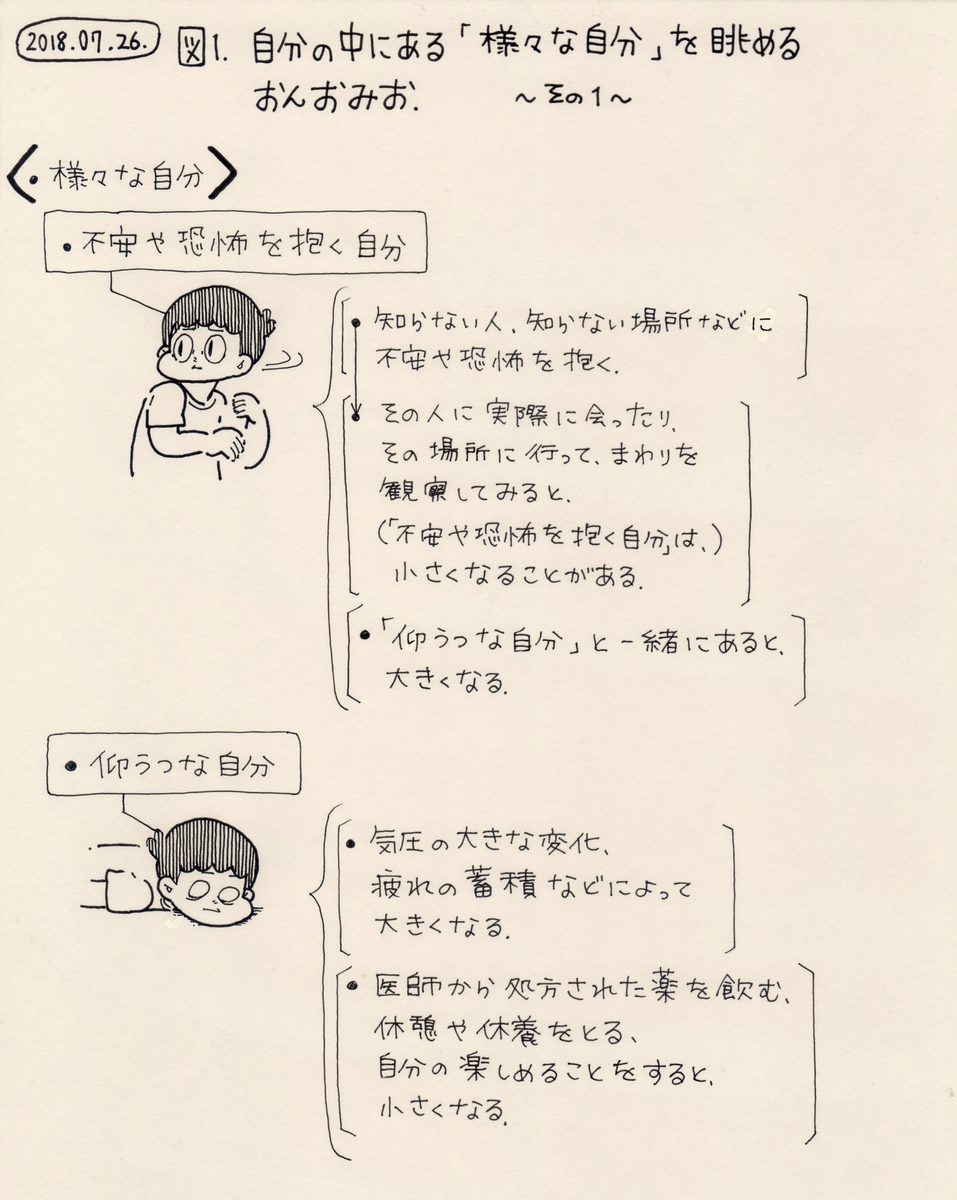 2018.07.26.
図1. 自分の中にある「様々な自分」を眺める
おんおみお. ～その1～
〈・様々な自分〉
・不安や恐怖を抱く自分
・知らない人、知らない場所などに
不安や恐怖を抱く.
・その人に実際に会ったり、
その場所に行って、まわりを
観察してみると、
(「不安や恐怖を抱く自分」は、)
小さくなることがある.
・「仰うつな自分」と一緒にあると、
大きくなる.
・仰うつな自分
・気圧の大きな変化、
疲れの蓄積などによって
大きくなる.
・医師から処方された薬を飲む、
休憩や休養をとる、
自分の楽しめることをすると、
小さくなる.